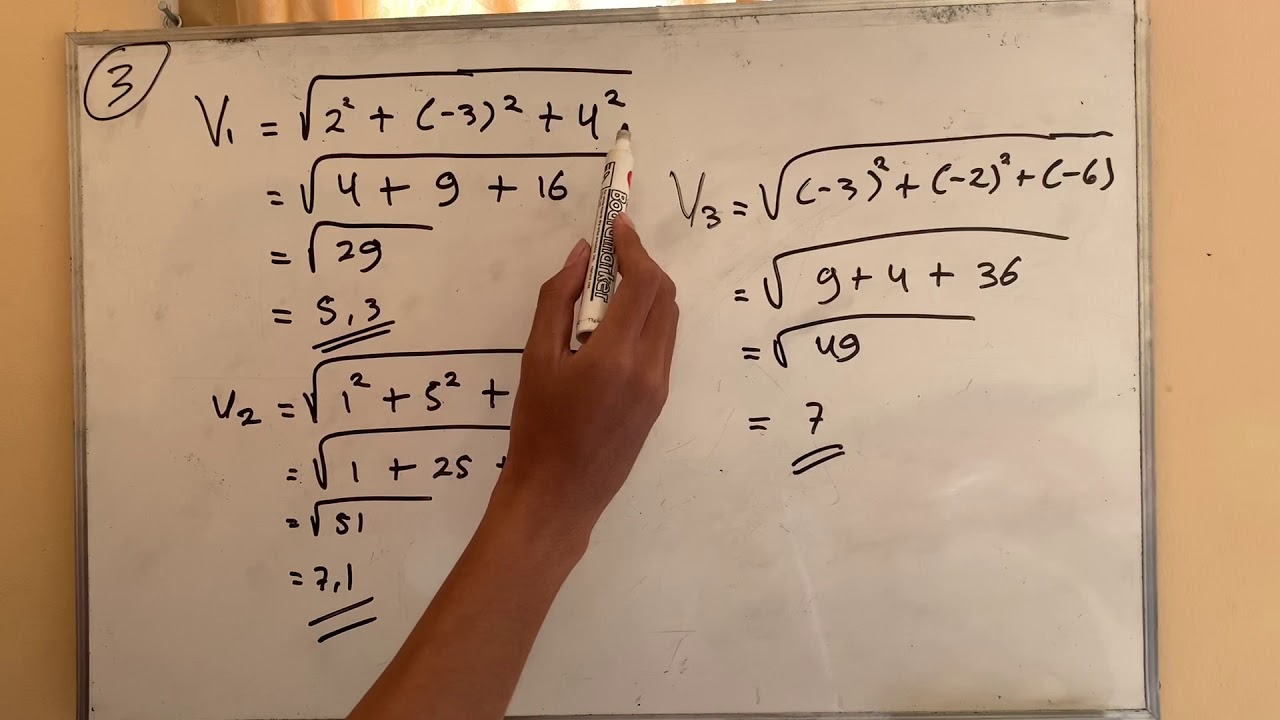 3
V₁ = √2² + (-3)² + 4²
= √4 + 9 + 16
= √29
= 5,3
V₂ = √1² + 5² +
= √1 + 25 +
= √51
= 7,1
V₃ = √(-3)² + (-2)² + (-6)
= √9 + 4 + 36
= √49
= 7
Boardmarker